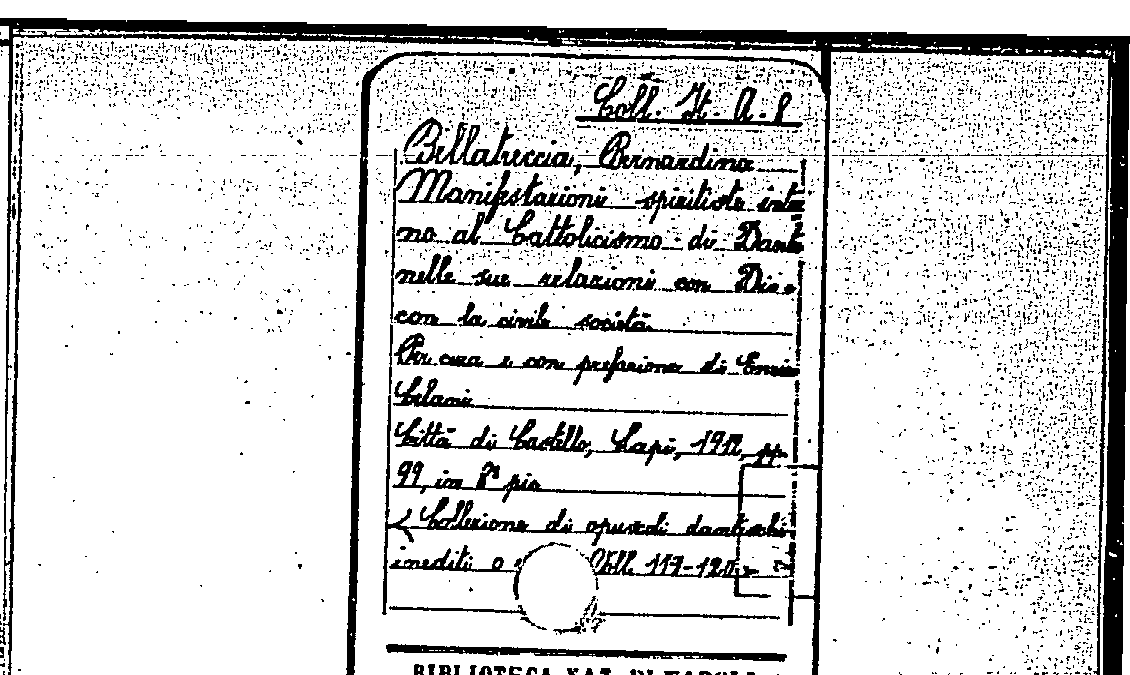 Coll. It. A. 8
Bellatreccia, Bernardino
Manifestazioni spiritiste
no al Cattolicismo di Dante
nelle sue relazioni con Dio e
con la civile società.
Per cura e con prefazione di
Celani
Città di Castello, Lapi, 1912, pp.
99, in 8° pic.
Collezione di opuscoli danteschi
inediti o Voll. 117-120
BIBLIOTECA NAZ. DI NAPOLI